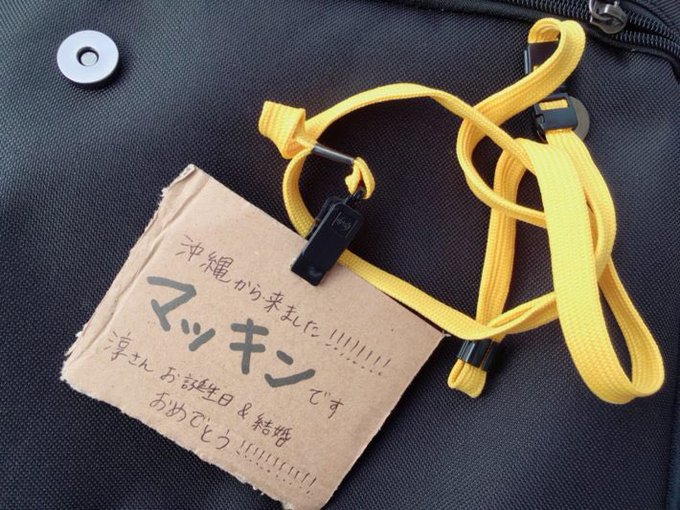 沖縄から来ました!!!!!!!!
マッキンです
淳さんお誕生日&結婚
おめでとう!!!!!!!!!!